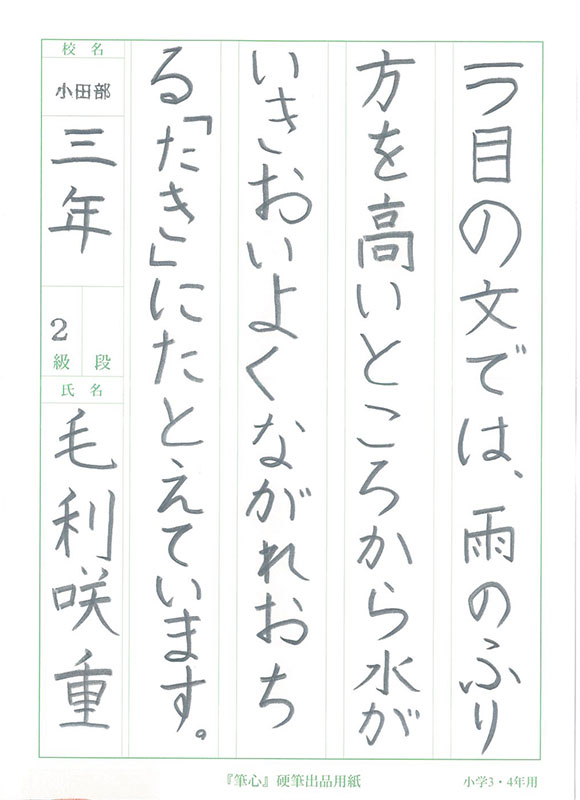 一つ目の文では、雨のふり
方を高いところから水が
いきおいよくながれおち
る「たき」にたとえています。
校名
小田部
三年
2
級 段
氏名
毛利咲重
『筆心』硬筆出品用紙
小学3・4年用